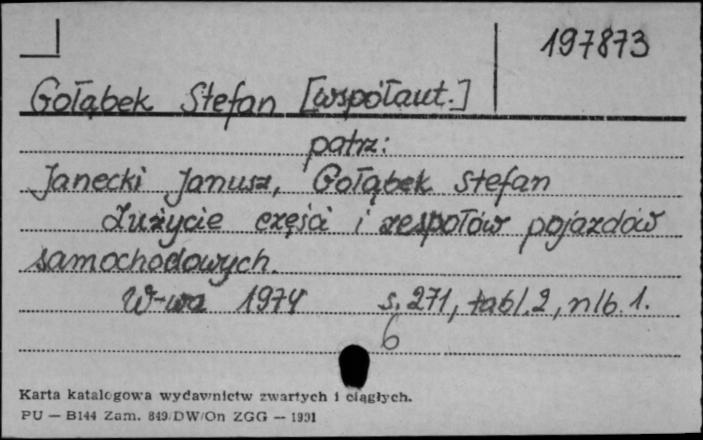 197873
Gołąbek Stefan [współaut.]
patrz:
Janecki Janusz, Gołąbek Stefan
Zużycie części i zespołów pojazdów
samochodowych.
W-wa 1974 s. 271, tabl. 2, nlb. 1.
6
Karta katalogowa wydawnictw zwartych i ciągłych.
PU — B144 Zam. 849/DW/On ZGG — 1991